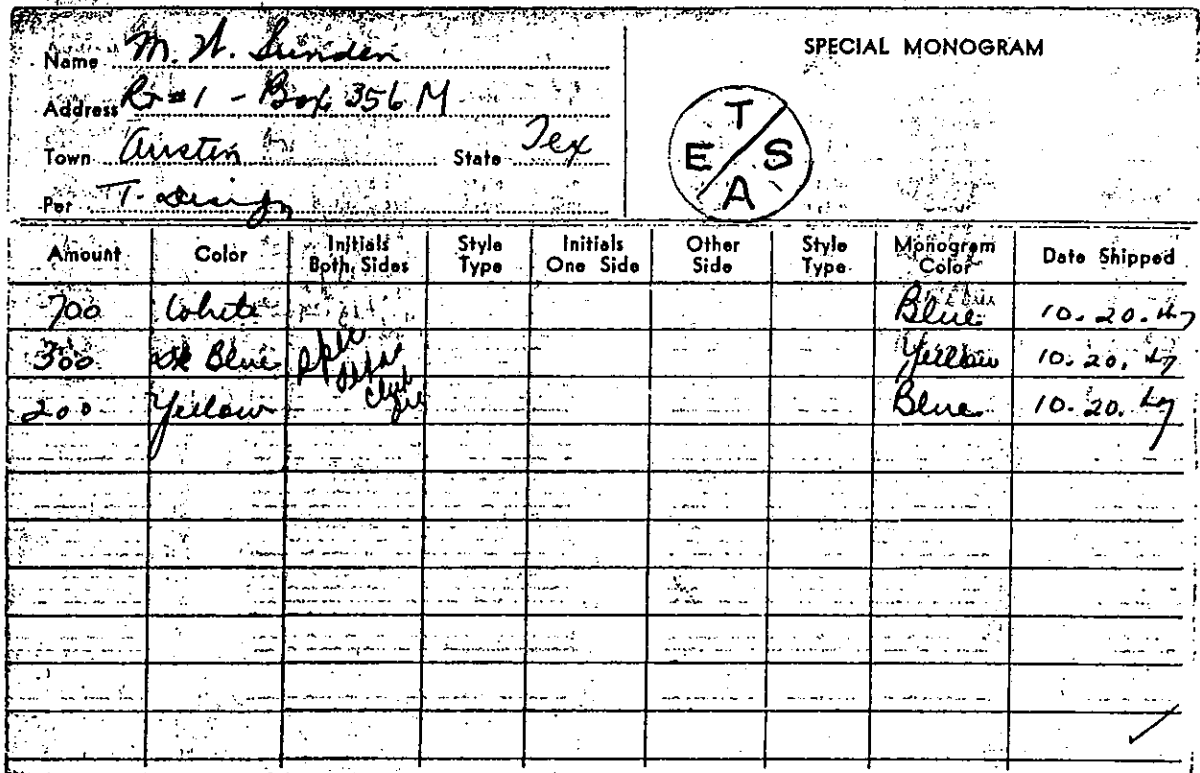 Name M. W. Sunden
Address Rt #1 - Box 356 M
Town Austin State Tex
Per T. Design
SPECIAL MONOGRAM
T
E S
A
Amount Color Initials Both Sides Style Type Initials One Side Other Side Style Type Monogram Color Date Shipped
700 White Blue 10. 20. 47
300 Dk Blue Spec Yellow 10. 20. 47
200 Yellow Blue 10. 20. 47